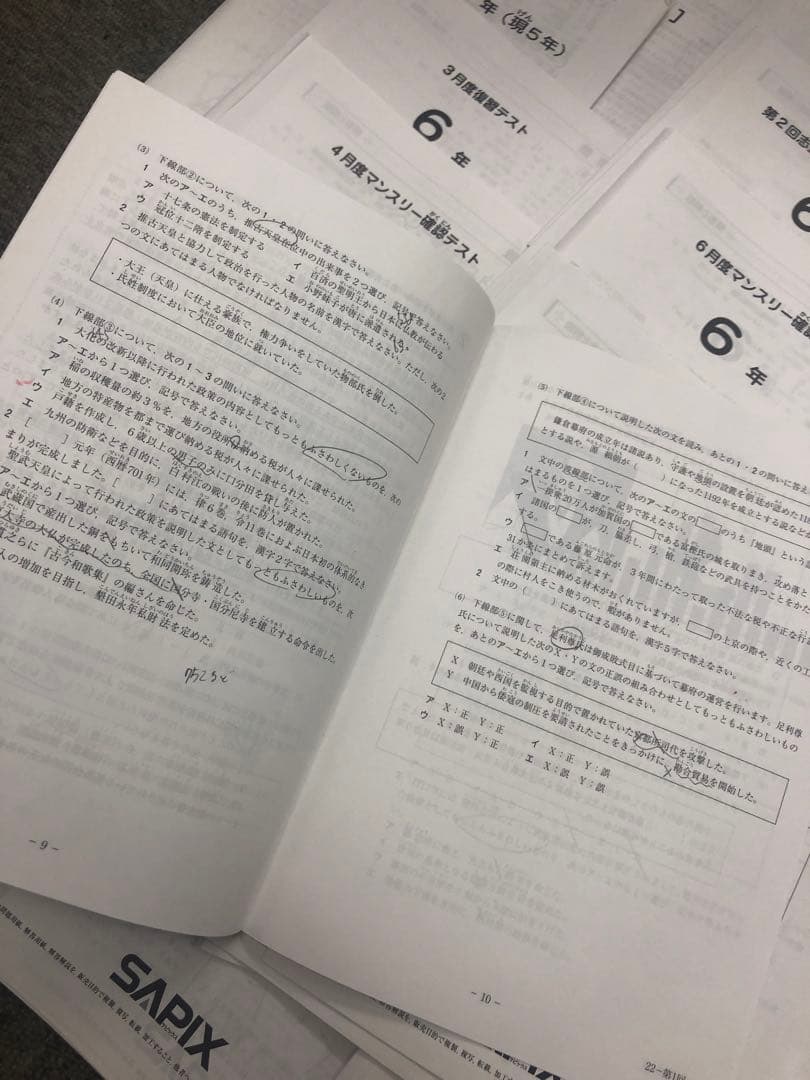 年（現５年）
３月度復習テスト
６年
４月度マンスリー確認テスト
第２回志
６月度マンスリー確認
６年
(3) 下線部②について、次の1・2の問いに答えなさい。
1 次のア〜エのうち、推古天皇在位中の出来事を２つ選び、記号で答えなさい。
ア 十七条の憲法を制定する
イ 百済の聖明王から日本に仏教が伝わる
ウ 冠位十二階を制定する
エ 小野妹子が隋に派遣される
2 推古天皇と協力して政治を行った人物の名前を漢字で答えなさい。ただし、次の2
つの文にあてはまる人物でなければなりません。
・大王（天皇）に仕える豪族で、権力争いをしていた物部氏を倒した。
・氏姓制度において大臣の地位に就いていた。
(4) 下線部③について、次の1〜3の問いに答えなさい。
1 大化の改新以降に行われた政策の内容としてもっともふさわしくないものを、次の
ア〜エから1つ選び、記号で答えなさい。
ア 稲の収穫量の約３％を、地方の役所に納める税が人々に課せられた。
イ 地方の特産物を都まで運び納める税が人々に課せられた。
ウ 戸籍を作成し、６歳以上の男子のみに口分田を貸し与えた。
エ 九州の防衛などを目的に、白村江の戦いの後に防人が置かれた。
2 [ ]元年（西暦701年）には、律６巻、令11巻におよぶ日本初の体系的な
まりが完成しました。[ ]にあてはまる語句を、漢字２字で答えなさい。
聖武天皇によって行われた政策を説明した文としてもっともふさわしいものを、次
ア〜エから１つ選び、記号で答えなさい。
武蔵国で産出した銅をもちいて和同開珎を鋳造した。
大寺の大仏が完成したのち、全国に国分寺・国分尼寺を建立する命令を出した。
貫之らに『古今和歌集』の編さんを命じた。
人の増加を目指し、墾田永年私財法を定めた。
－9－
(5) 下線部④について説明した次の文を読み、あとの1・2の問いに答え
鎌倉幕府の成立年は諸説あり、守護や地頭の設置を朝廷が認めた11
とする説や、源頼朝が（ ）になった1192年を成立とする説など
1 文中の波線部について、次のア〜エの文の□のうち「地頭」という語
はまるものを1つ選び、記号で答えなさい。
ア 一揆衆20万人が加賀国の□である富樫氏の城を取りまき、攻め落と
イ 諸国の□が、刀、脇差し、弓、槍、鉄砲などの武具を持つことをか
する。
ウ □である藤原元命が、３年間にわたって取った不法な税や不正な行
31か条にまとめて訴えます。
エ 荘園領主に納める材木がおくれていますが、□の上京の際や、近くの工
の際に村人をこき使うので、暇がありません。
2 文中の（ ）にあてはまる語句を、漢字５字で答えなさい。
(6) 下線部⑤に関して、足利尊氏は御成敗式目に基づいて幕府の運営を行います。足利尊
氏について説明した次のX・Yの文の正誤の組み合わせとしてもっともふさわしいもの
を、あとのア〜エから１つ選び、記号で答えなさい。
X 朝廷や西国を監視する目的で置かれていた京都所司代を攻撃した。
Y 中国から倭寇の制圧を要請されたことをきっかけに、勘合貿易を開始した。
ア X：正 Y：正
イ X：正 Y：誤
ウ X：誤 Y：正
エ X：誤 Y：誤
－10－
SAPIX
22－第1回